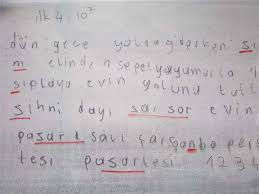 ilk 4. 10 7
dün gece yolda giderken si
m elinden sepet yayumurla
siplayu evin yolunu tutt
sihni dayı sarsor evin
pasar t savı çarşanba perş
tesi pasartesi 1 2 3 4